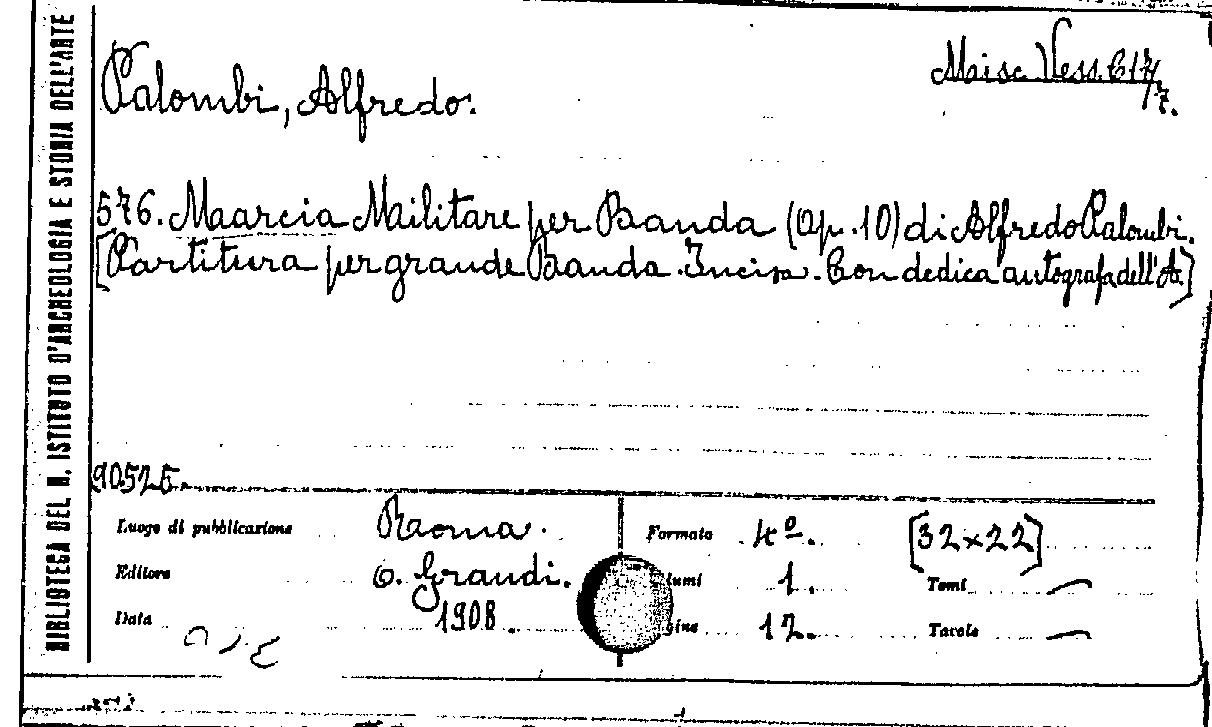 BIBLIOTECA DEL R. ISTITUTO D'ARCHEOLOGIA E STORIA DELL'ARTE
Palombi, Alfredo.
Misc. Vess. C 17/7.
576. Marcia Militare per Banda (Op. 10) di Alfredo Palombi.
[Partitura per grande Banda. Incisa. Con dedica autografa dell'A.]
90525
Luogo di pubblicazione Roma. Formato 4º. [32x22]
Editore O. Grandi. lumi 1. Tomi —
Data 1908. gine 12. Tavole —